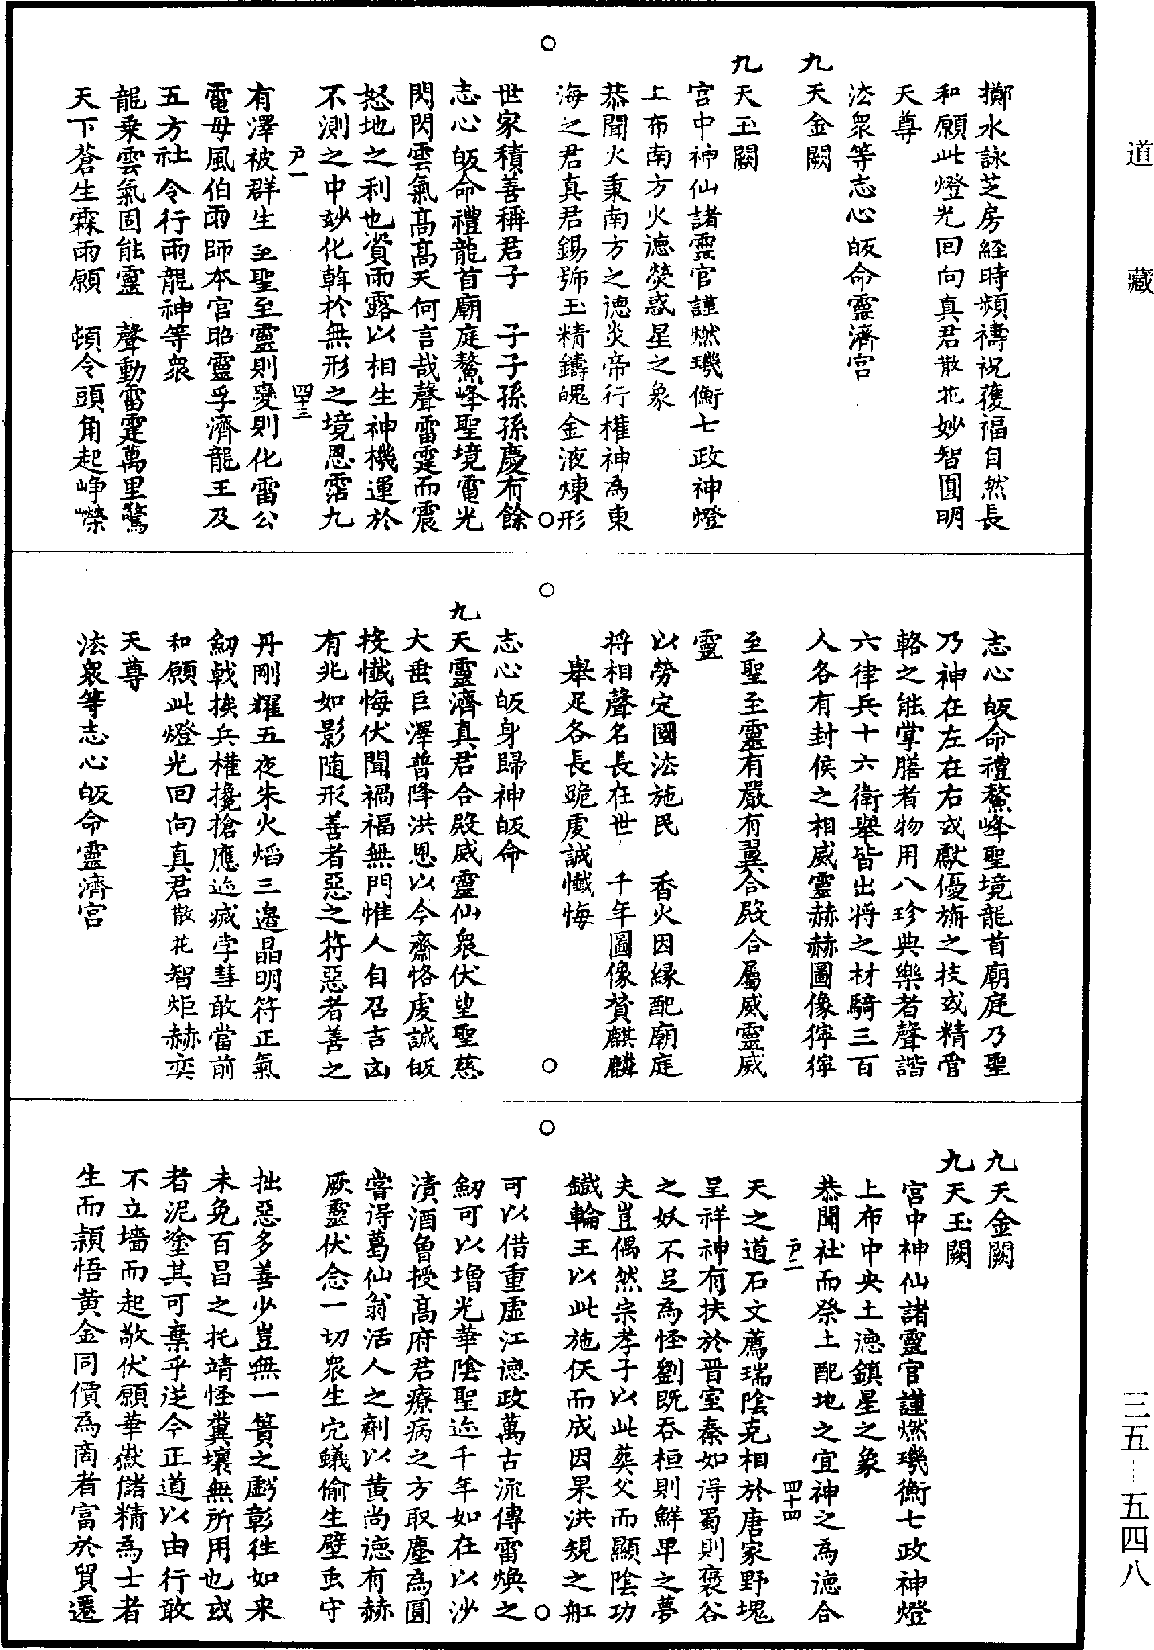 道藏
三五—五四八
擲水詠芝房経時頻禱祝獲福自然長
和願此燈光回向真君散花妙智圓明
天尊
法衆等志心皈命靈濟宮
九天金闕
九天玉闕
宮中神仙諸靈官謹燃璣衡七政神燈
上布南方火德熒惑星之象
恭聞火秉南方之德炎帝行權神為東
海之君真君錫號玉精鑄魄金液煉形
世家積善稱君子　子子孫孫慶有餘
志心皈命禮龍首廟庭鰲峰聖境電光
閃閃雲氣高高天何言哉聲雷霆而震
怒地之利也資雨露以相生神機運於
不測之中妙化斡於無形之境恩霑九
尹一　四十三
有澤被群生至聖至靈則變則化雷公
電母風伯雨師本宮昭靈孚濟龍王及
五方社令行雨龍神等衆
龍乘雲氣固能靈　聲動雷霆萬里驚
天下蒼生霖雨願　頓令頭角起崢嶸
志心皈命禮鰲峰聖境龍首廟庭乃聖
乃神在左在右或獻優旃之技或精曾
輅之能掌膳者物用八珍典樂者聲諧
六律兵十六衛舉皆出將之材騎三百
人各有封侯之相威靈赫赫圖像獰獰
至聖至靈有嚴有翼合殿合屬威靈威
靈
以勞定國法施民　香火因緣配廟庭
將相聲名長在世　千年圖像贊麒麟
舉足各長跪虔誠懺悔
志心皈身歸神皈命
九天靈濟真君合殿威靈仙衆伏望聖慈
大垂巨澤普降洪恩以今齋恪虔誠皈
投懺悔伏聞禍福無門惟人自召吉凶
有兆如影隨形善者惡之符惡者善之
丹剛耀五夜朱火焰三邊晶明符正氣
劒戟挨兵權攙搶應迹㓕孛彗敢當前
和願此燈光回向真君散花智炬赫奕
天尊
法衆等志心皈命靈濟宮
九天金闕
九天玉闕
宮中神仙諸靈官謹燃璣衡七政神燈
上布中央土德鎮星之象
恭聞社而祭土配地之宜神之為德合
尹二　四十四
天之道石文薦瑞陰克相於唐家野塊
呈祥神有扶於晋室秦如得蜀則褒谷
之妖不足為怪劉既吞桓則鮮卑之夢
夫豈偶然宗孝子以此葬父而顯陰功
鐵輪王以此施仸而成因果洪規之舡
可以借重虛江德政萬古流傳雷煥之
劒可以增光華陰聖迹千年如在以沙
漬酒魯授高府君療病之方取塵為圓
嘗得葛仙翁活人之劑以黄尚德有赫
厥靈伏念一切衆生宂蟻偷生壁䖝守
拙惡多善少豈無一簣之虧彰徃如来
未免百昌之托靖怪糞壤無所用也或
者泥塗其可棄乎逆今正道以由行敢
不立墻而起敬伏願華嶽儲精為士者
生而頴悟黄金同價為商者富於貿遷